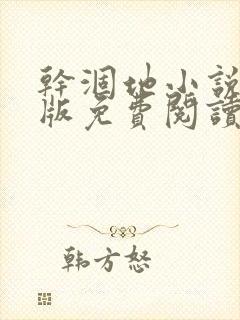 幹涸地小説
版免費閱讀
韩方怒